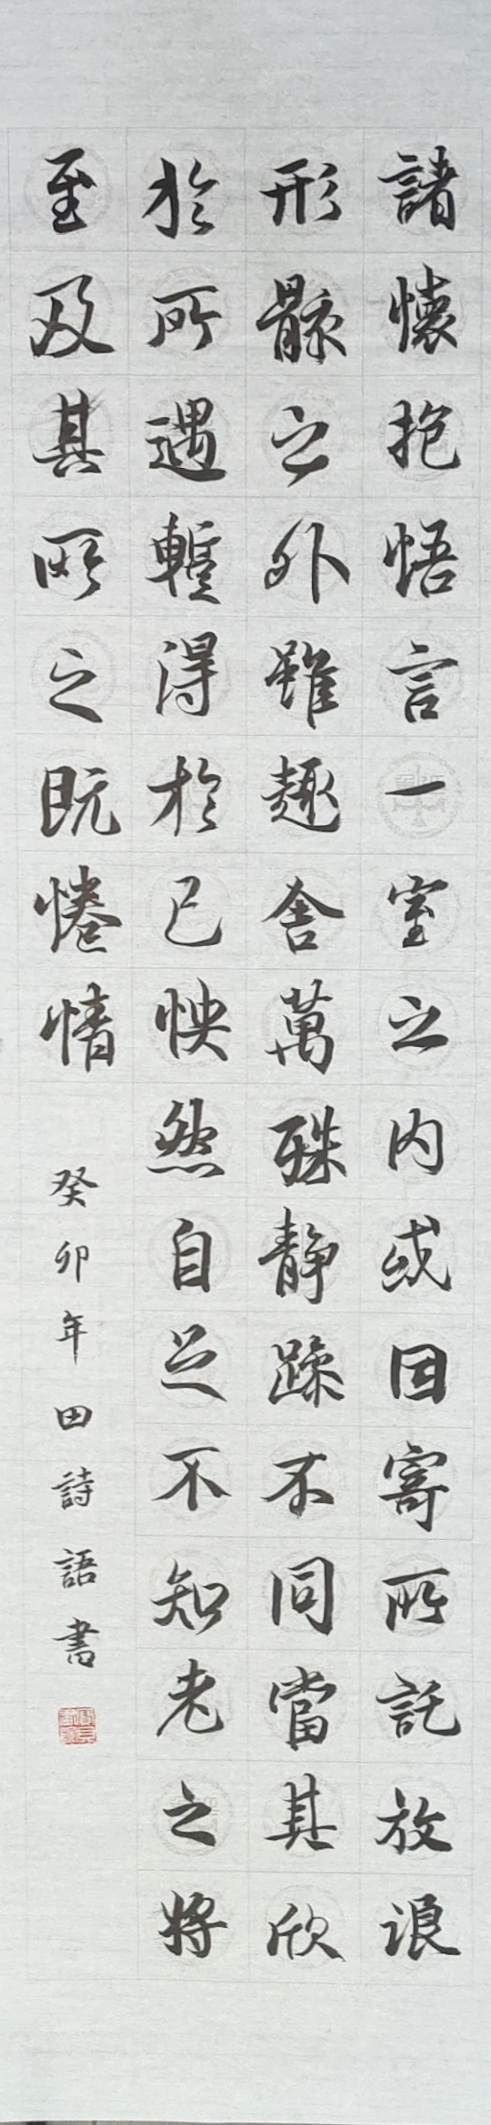 諸懷抱悟言一室之内或因寄所託放浪
形骸之外雖趣舍萬殊静躁不同當其欣
於所遇蹔得於己怏然自足不知老之將
至及其所之既惓情
癸卯年田詩語書